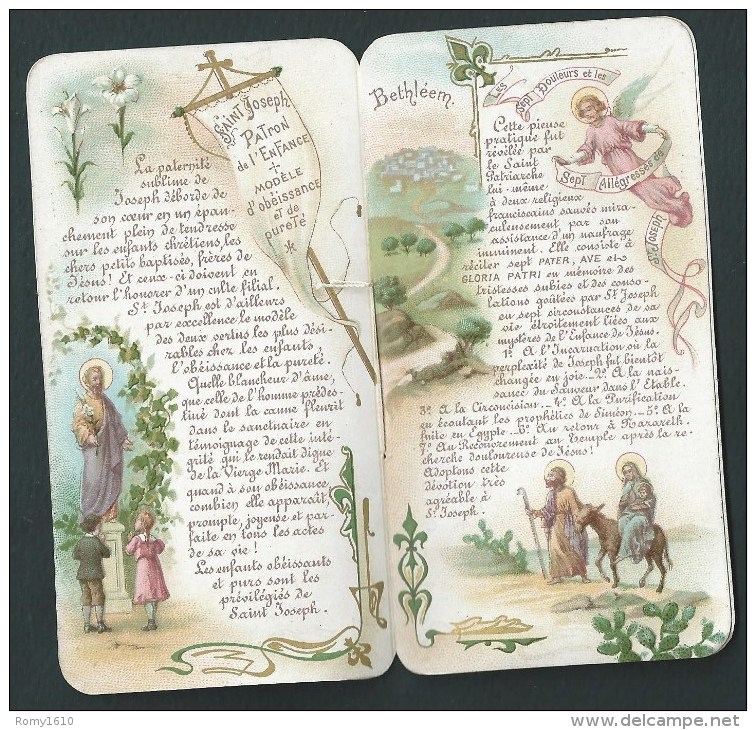 Saint Joseph
Patron
de l'Enfance
+
Modèle
d'obéissance
et de
pureté
La paternité
sublime de
Joseph déborde de
son cœur en un épan-
chement plein de tendresse
sur les enfants chrétiens, les
chers petits baptisés, frères de
Jésus! Et ceux-ci doivent en
retour l'honorer d'un culte filial.
St. Joseph est d'ailleurs
par excellence le modèle
des deux vertus les plus dési-
rables chez les enfants,
l'obéissance et la pureté.
Quelle blancheur d'âme,
que celle de l'homme prédes-
tiné dont la canne fleurit
dans le sanctuaire en
témoignage de cette inté-
grité qui le rendait digne
de la Vierge Marie. Et
quand à son obéissance,
combien elle apparaît
prompte, joyeuse et par-
faite en tous les actes
de sa vie!
Les enfants obéissants
et purs sont les
privilégiés de
Saint Joseph.
Bethléem.
Les
Sept Douleurs et les
Sept Allégresses de
St. Joseph
Cette pieuse
pratique fut
révélée par
le Saint
Patriarche
lui-même
à deux religieux
franciscains sauvés mira-
culeusement par son
assistance d'un naufrage
imminent. Elle consiste à
réciter sept PATER, AVE et
GLORIA PATRI en mémoire des
tristesses subies et des conso-
lations goûtées par St. Joseph
en sept circonstances de sa
vie étroitement liées aux
mystères de l'Enfance de Jésus.
1º. A l'Incarnation où la
perplexité de Joseph fut bientôt
changée en joie._2º. A la nais-
sance du Sauveur dans l'Etable.
3º. A la Circoncision._4º. A la Purification
en écoutant les prophéties de Siméon._5º. A la
fuite en Egypte._6º. Au retour à Nazareth.
7º. Au Recouvrement au Temple après la re-
cherche douloureuse de Jésus!
Adoptons cette
dévotion très
agréable à
St. Joseph.
Romy1610
www.delcampe.net